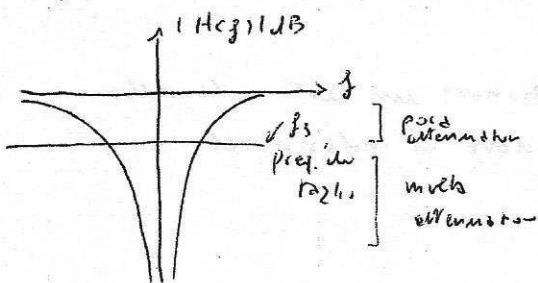 |H(f)| dB
f
poca
attenuation
freq. di
taglio
molta
attenuation